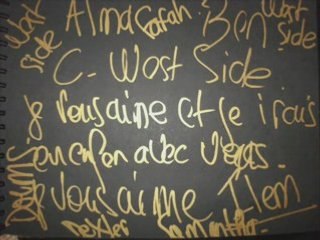 West side Alma Sarah Ben West side
C- West Side
Je vous aime et je irais
en enfer avec vous.
Je vous aime Ilem
Dexter Samantha